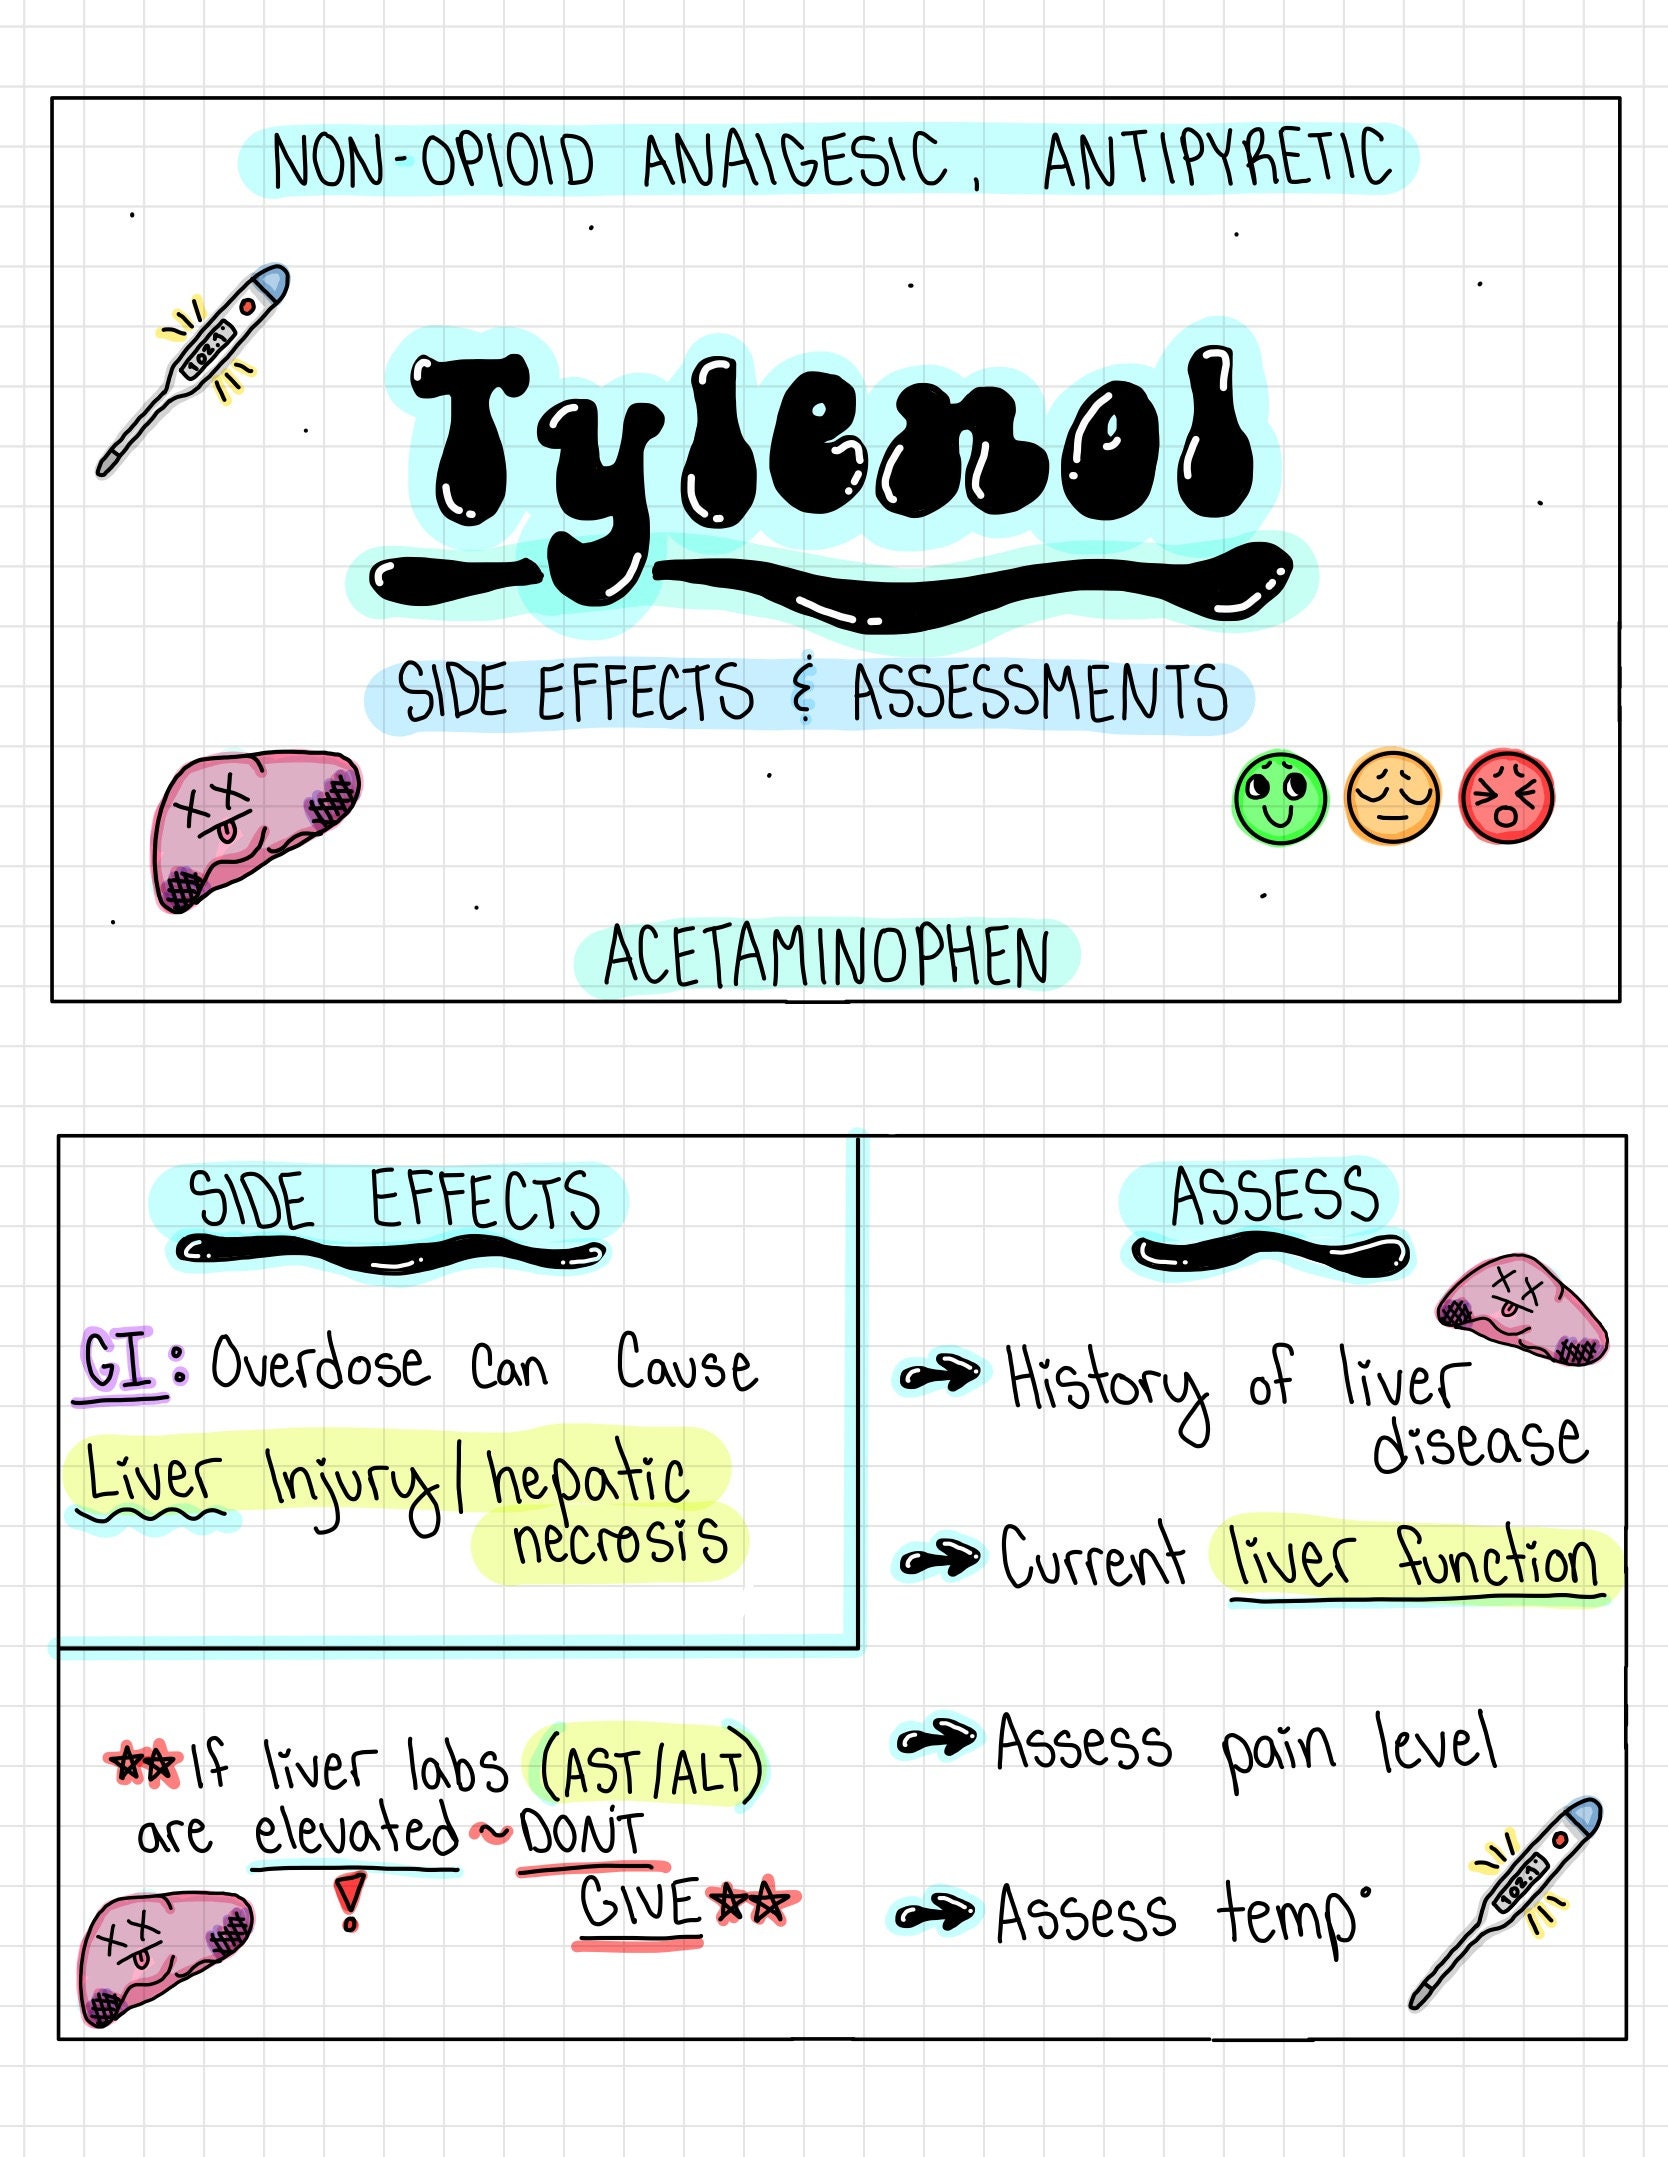 NON-OPIOID ANAlGESIC, ANTIPYRETIC
102.1°
Tylenol
SIDE EFFECTS & ASSESSMENTS
ACETAMINOPHEN
SIDE EFFECTS
GI: Overdose Can Cause
Liver Injury/hepatic
necrosis
**If liver labs (AST/ALT)
are elevated ~ DON'T
!
GIVE**
ASSESS
History of liver
disease
Current liver function
Assess pain level
Assess temp°
102.1°